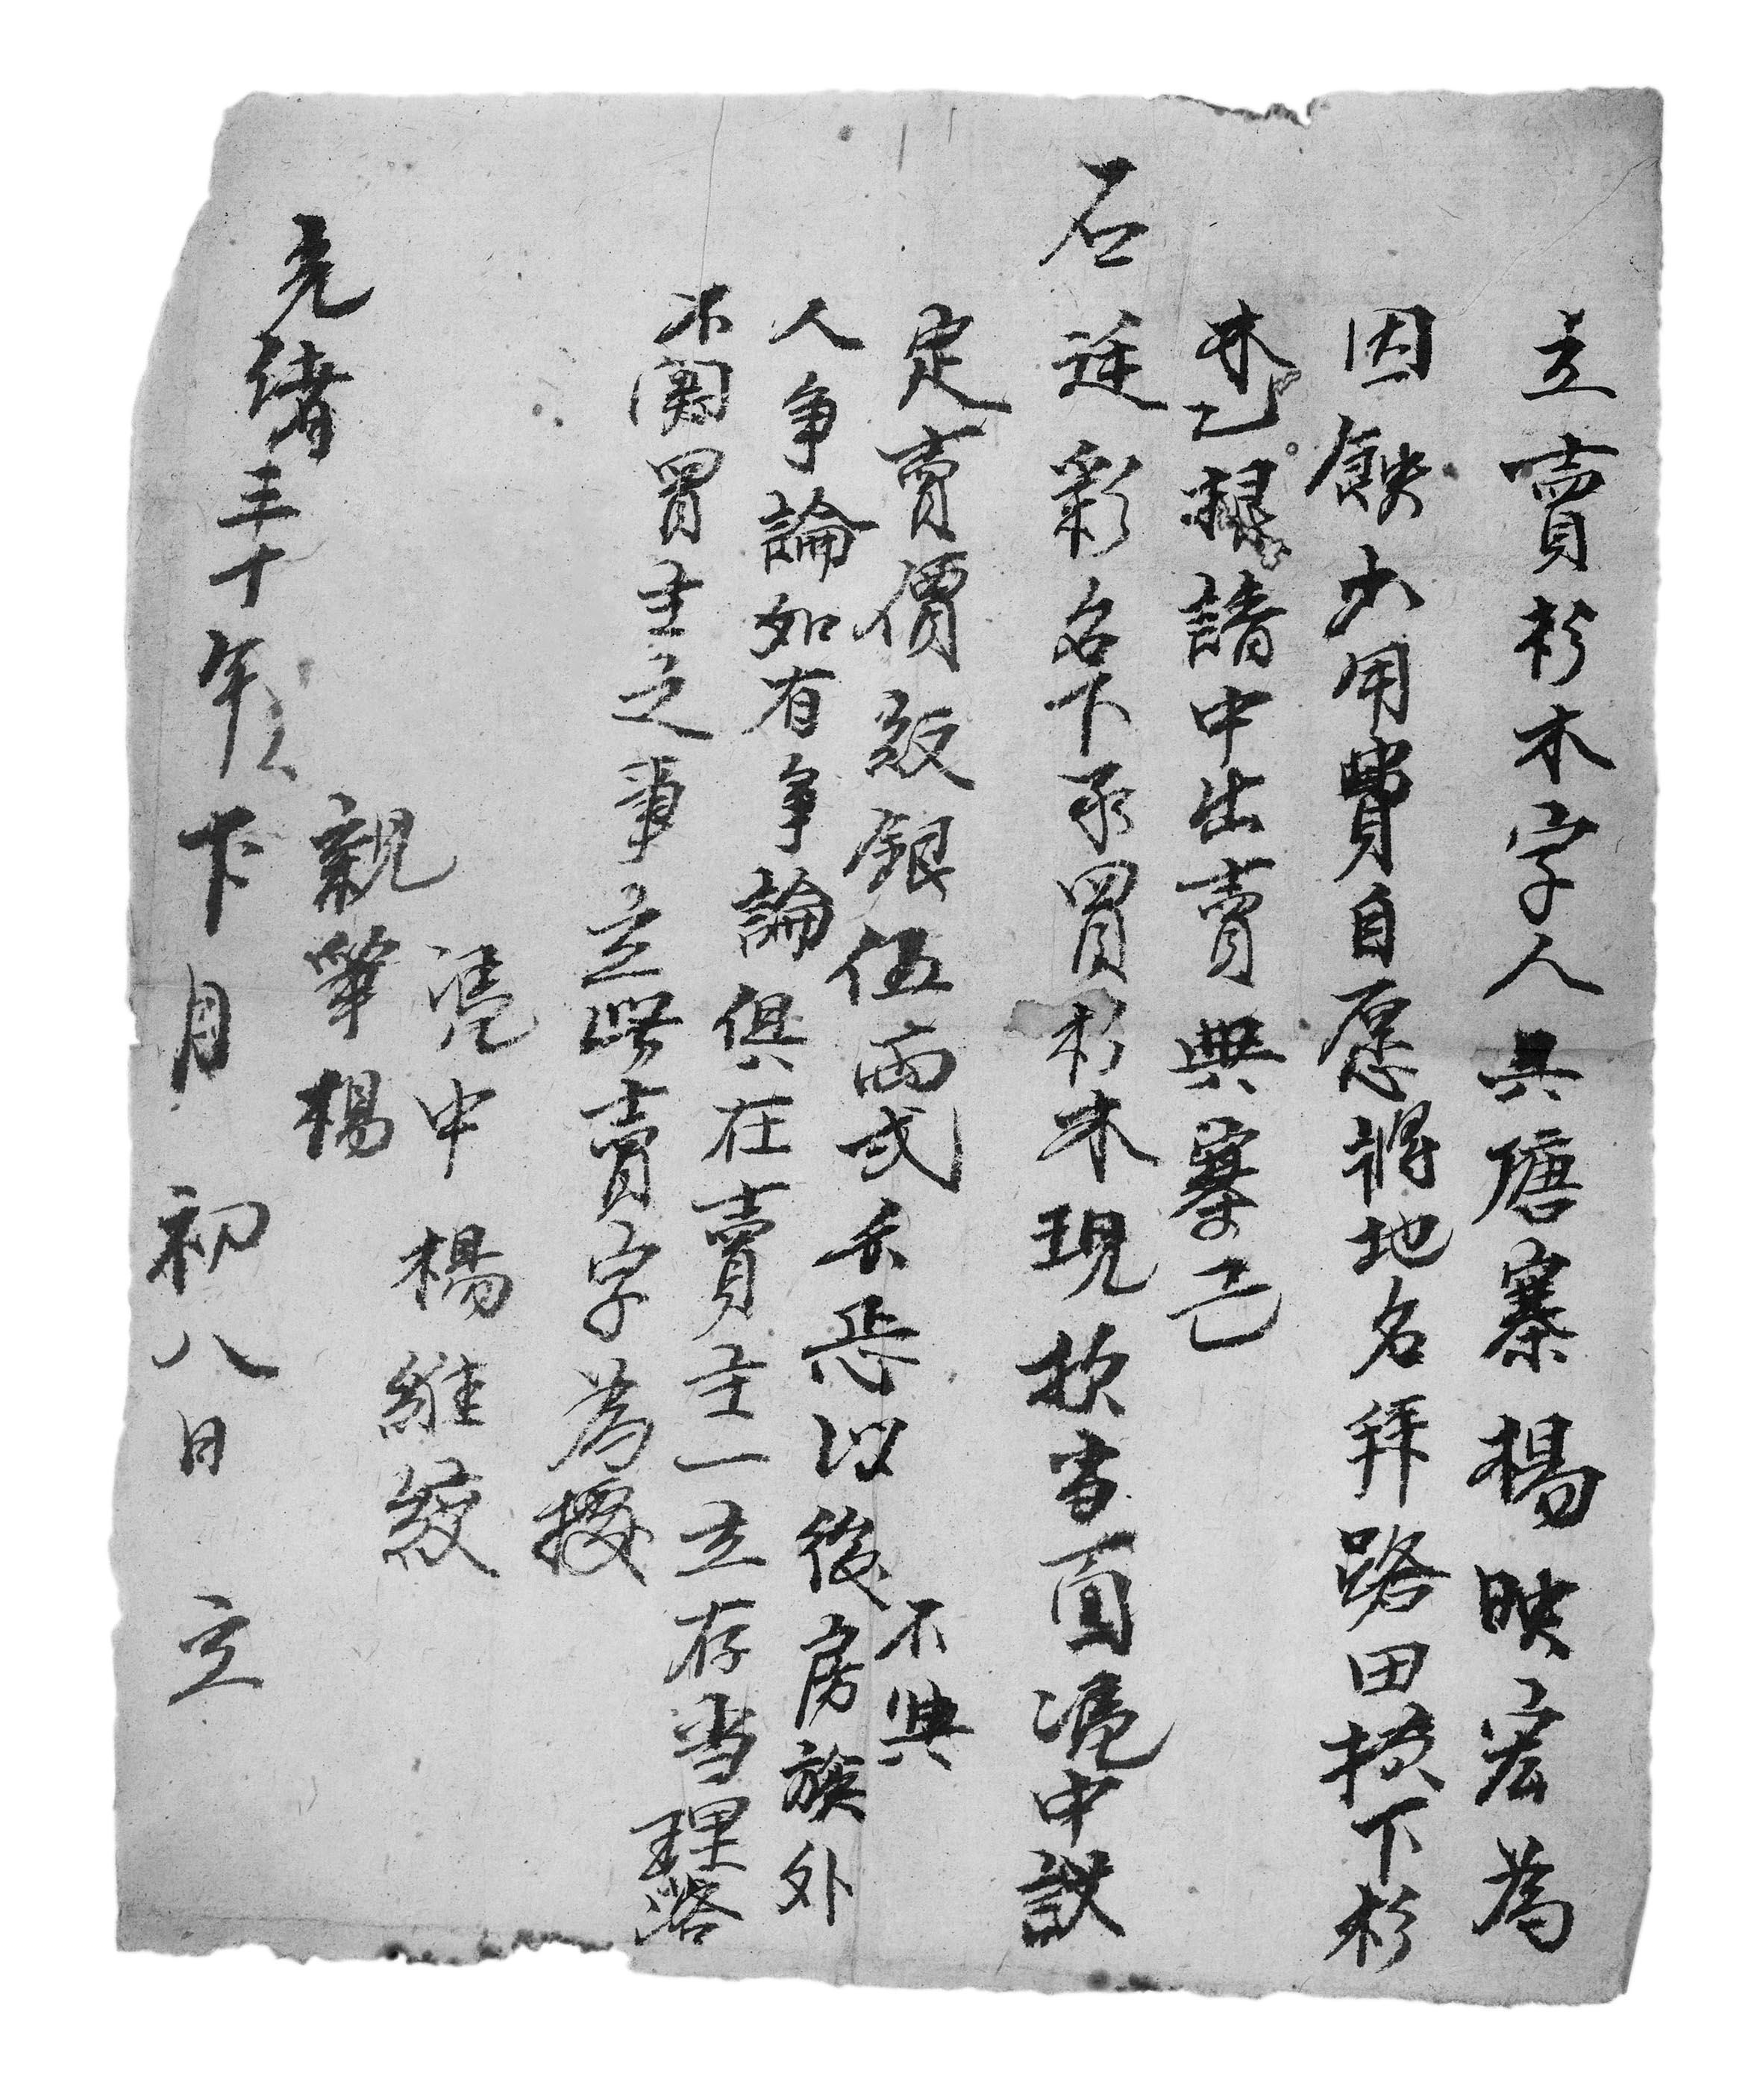 立賣杉木字人具塘寨楊映宏為
因缺少用費自愿將地名拜路田坎下杉
木乙根請中出賣與寨己
石廷彩名下承買杉木現砍當面憑中議
定賣價紋銀伍兩弍
不與
人爭論如有爭論俱在賣主一立存当理落
不関買主之事立此賣字為據
憑中楊維
親筆楊
光緒三十年 月初八日立